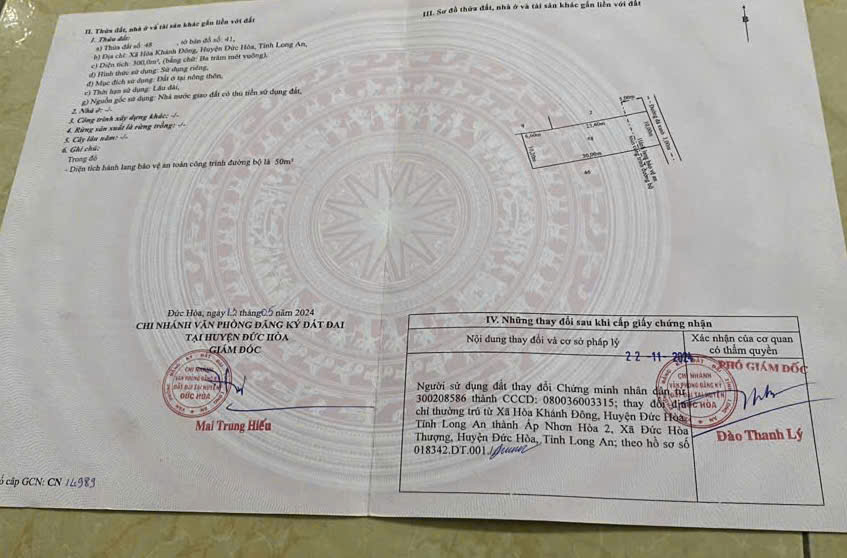 II. Thửa đất, nhà ở và tài sản khác gắn liền với đất
1. Thửa đất:
a) Thửa đất số: 48 , tờ bản đồ số: 41,
b) Địa chỉ: Xã Hòa Khánh Đông, Huyện Đức Hòa, Tỉnh Long An,
c) Diện tích: 300,0m², (bằng chữ: Ba trăm mét vuông),
d) Hình thức sử dụng: Sử dụng riêng,
đ) Mục đích sử dụng: Đất ở tại nông thôn,
e) Thời hạn sử dụng: Lâu dài,
g) Nguồn gốc sử dụng: Nhà nước giao đất có thu tiền sử dụng đất.
2. Nhà ở: -/-
3. Công trình xây dựng khác: -/-
4. Rừng sản xuất là rừng trồng: -/-
5. Cây lâu năm: -/-
6. Ghi chú:
Trong đó
- Diện tích hành lang bảo vệ an toàn công trình đường bộ là 50m²
Đức Hòa, ngày 13 tháng 05 năm 2024
CHI NHÁNH VĂN PHÒNG ĐĂNG KÝ ĐẤT ĐAI
TẠI HUYỆN ĐỨC HÒA
GIÁM ĐỐC
CHI NHÁNH
VĂN PHÒNG ĐĂNG KÝ
ĐẤT ĐAI TẠI HUYỆN
ĐỨC HÒA
Mai Trung Hiếu
số cấp GCN: CN 14989
III. Sơ đồ thửa đất, nhà ở và tài sản khác gắn liền với đất
B
5,00m
2
9
6,60m
23,40m
48
10,00m
10,00m
30,00m
46
Hành lang bảo vệ an
toàn công trình đường bộ
IV. Những thay đổi sau khi cấp giấy chứng nhận
Nội dung thay đổi và cơ sở pháp lý
Xác nhận của cơ quan
có thẩm quyền
22-11-2024
PHÓ GIÁM ĐỐC
Người sử dụng đất thay đổi Chứng minh nhân dân từ
300208586 thành CCCD: 080036003315; thay đổi địa
chỉ thường trú từ Xã Hòa Khánh Đông, Huyện Đức Hòa,
Tỉnh Long An thành Ấp Nhơn Hòa 2, Xã Đức Hòa
Thượng, Huyện Đức Hòa, Tỉnh Long An; theo hồ sơ số
018342.DT.001./.
CHI NHÁNH
VĂN PHÒNG ĐĂNG KÝ
ĐẤT ĐAI TẠI HUYỆN
ĐỨC HÒA
Đào Thanh Lý